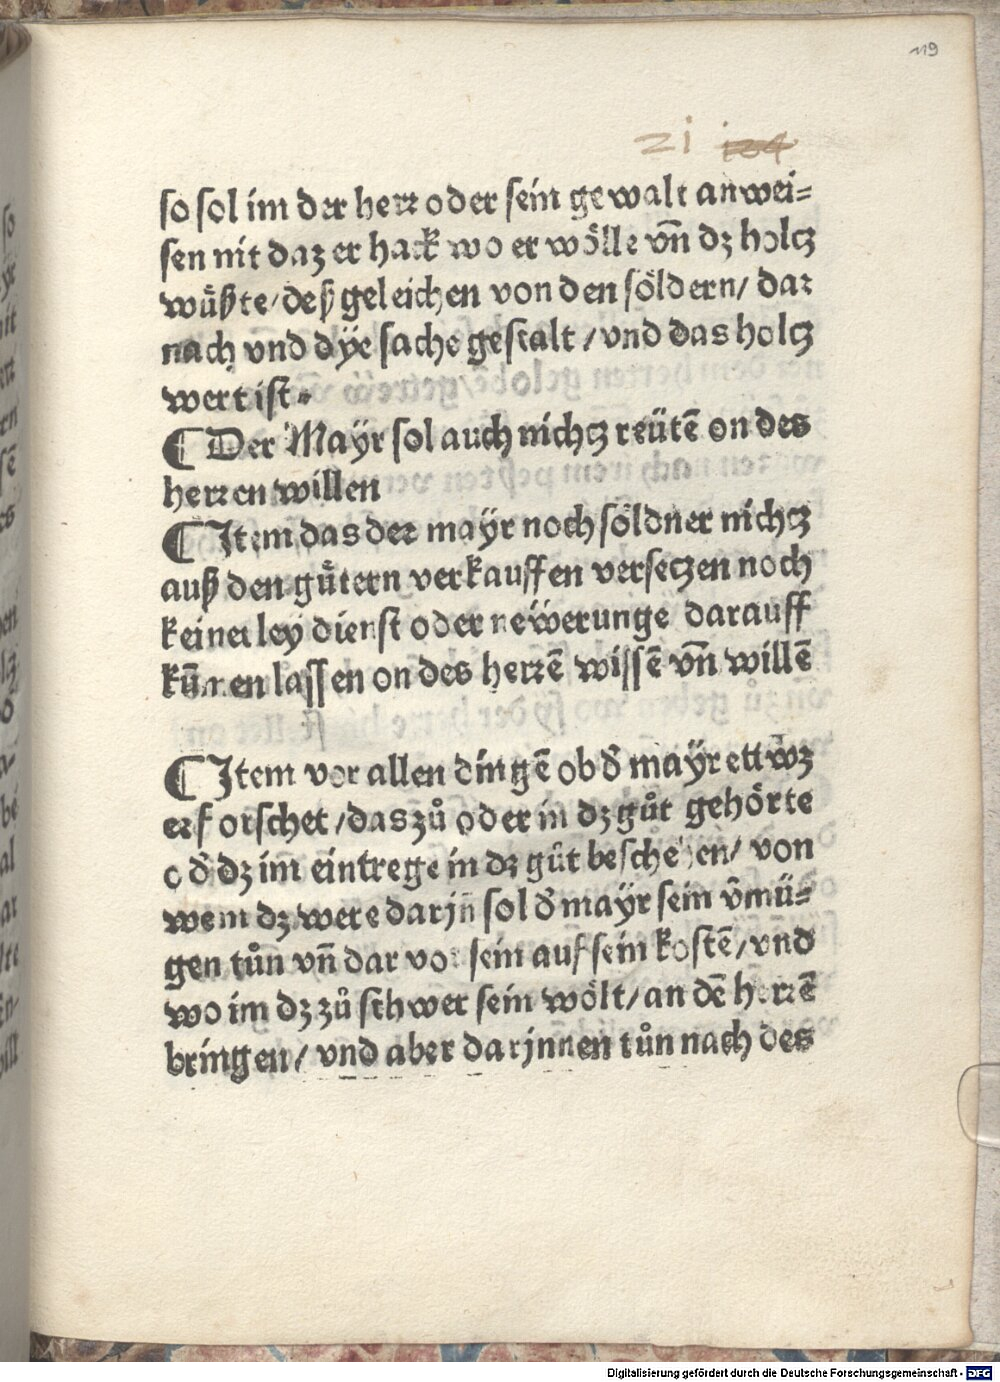 119
21 104
so sol im der herꝛ oder sein gewalt anwei⸗
sen nit daz er hack wo er wölle vn̄ dz holcz
wüßte/ deß geleichen von den söldern/ daꝛ
nach vnd dÿe sache gestalt/ vnd das holcz
wert ist⸗
¶ Der Mayr sol auch nichcz reütē on des
herꝛen willen
¶ Item das deꝛ mayr noch söldner nichcz
auß den gu̇tern verkauffen verseczen noch
keinerley dienst oder neẅerunge darauff
kūmen lassen on des herꝛē wissē vn̄ willē
¶ Item vor allen dingē ob d̄ mayr ettwz
eꝛforschet/ das zů oder in dz gůt gehörte
od̄ dz im eintrege in dz gůt beschehen/ von
wem dz were darjn̄ sol d̄ mayr sein v̄mü⸗
gen tůn vn̄ dar vor sein auf sein kostē/ vnd
wo im dz zů schwer sein wölt/ an dē herꝛē
bringen/ vnd aber darjnnen tůn nach des
Digitalisierung gefördert durch die Deutsche Forschungsgemeinschaft - DFG